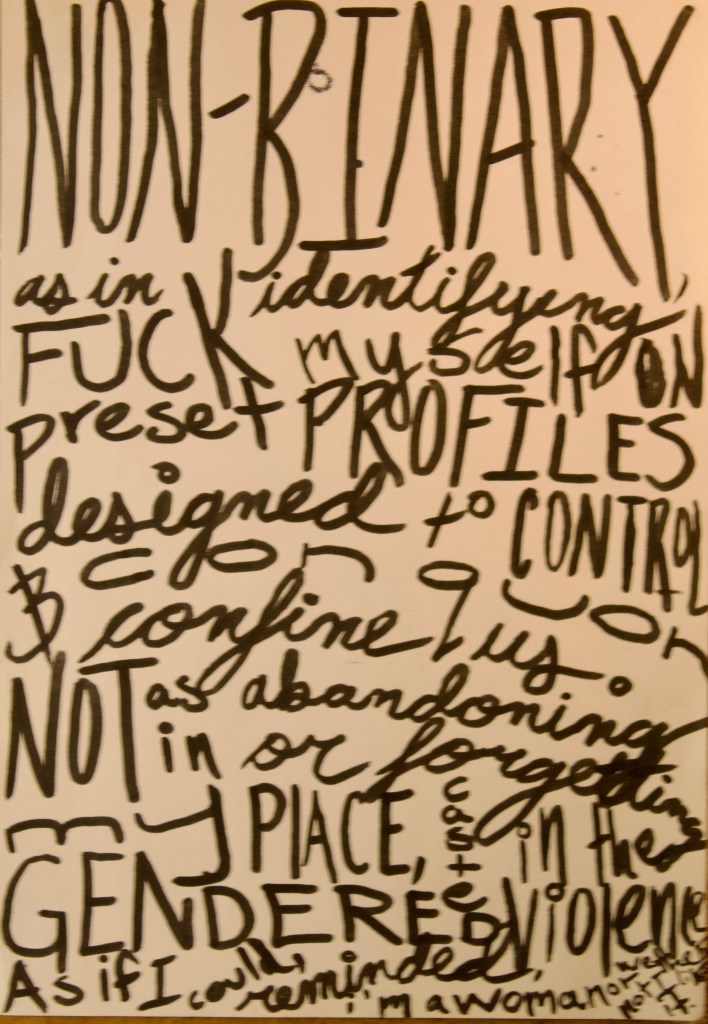 NON-BINARY
as in identifying,
FUCK myself ON
preset PROFILES
designed to CONTROL
& confine us.
NOT as in abandoning
or forgetting
my PLACE, caste in the
GENDERED violence
As if I could, reminded,
i'm a woman
whether
or not I like
it.